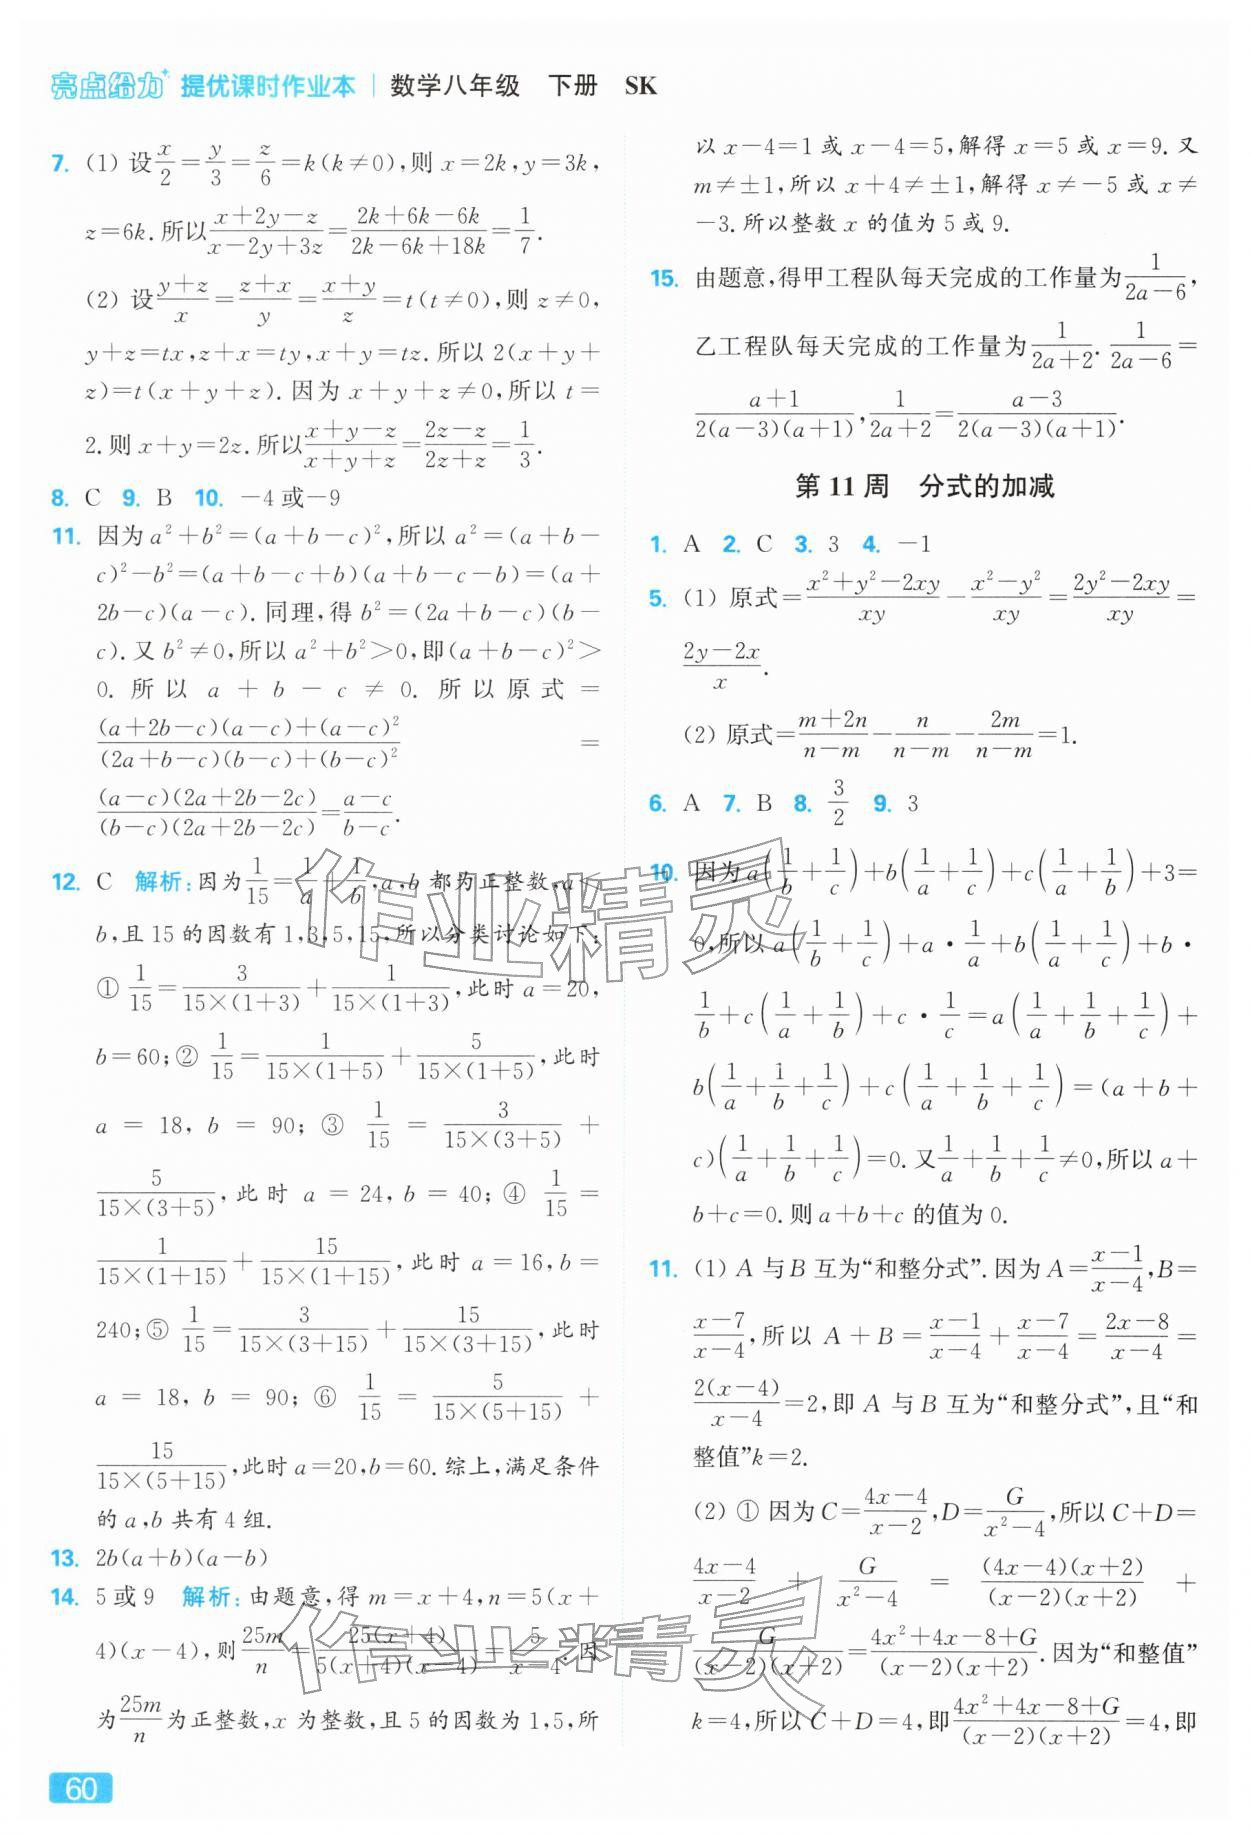 亮点给力 提优课时作业本 | 数学八年级 下册 SK
7. (1) 设x/2=y/3=z/6=k(k≠0),则 x=2k,y=3k,
z=6k.所以(x+2y-z)/(x-2y+3z)=(2k+6k-6k)/(2k-6k+18k)=1/7.
(2) 设(y+z)/x=(z+x)/y=(x+y)/z=t(t≠0),则 z≠0,
y+z=tx,z+x=ty,x+y=tz.所以 2(x+y+
z)=t(x+y+z).因为 x+y+z≠0,所以 t=
2.则 x+y=2z.所以(x+y-z)/(x+y+z)=(2z-z)/(2z+z)=1/3.
8. C 9. B 10. -4或-9
11. 因为 a²+b²=(a+b-c)²,所以 a²=(a+b-
c)²-b²=(a+b-c+b)(a+b-c-b)=(a+
2b-c)(a-c).同理,得 b²=(2a+b-c)(b-
c).又 b²≠0,所以 a²+b²>0,即(a+b-c)²>
0. 所以 a+b-c≠0. 所以原式=
((a+2b-c)(a-c)+(a-c)²)/((2a+b-c)(b-c)+(b-c)²)=
((a-c)(2a+2b-2c))/((b-c)(2a+2b-2c))=(a-c)/(b-c).
12. C 解析:因为1/15=1/a+1/b,a,b 都为正整数,a<
b,且 15 的因数有 1,3,5,15,所以分类讨论如下:
① 1/15=3/(15×(1+3))+1/(15×(1+3)),此时 a=20,
b=60;② 1/15=1/(15×(1+5))+5/(15×(1+5)),此时
a=18,b=90;③ 1/15=3/(15×(3+5))+
5/(15×(3+5)),此时 a=24,b=40;④ 1/15=
1/(15×(1+15))+15/(15×(1+15)),此时 a=16,b=
240;⑤ 1/15=3/(15×(3+15))+15/(15×(3+15)),此时
a=18,b=90;⑥ 1/15=5/(15×(5+15))+
15/(15×(5+15)),此时 a=20,b=60.综上,满足条件
的 a,b 共有 4 组.
13. 2b(a+b)(a-b)
14. 5或9 解析:由题意,得 m=x+4,n=5(x+
4)(x-4),则25m/n=25(x+4)/(5(x+4)(x-4))=5/(x-4).因
为25m/n为正整数,x 为整数,且 5 的因数为 1,5,所
60
以 x-4=1 或 x-4=5,解得 x=5 或 x=9. 又
m≠±1,所以 x+4≠±1,解得 x≠-5 或 x≠
-3.所以整数 x 的值为 5 或 9.
15. 由题意,得甲工程队每天完成的工作量为1/(2a-6),
乙工程队每天完成的工作量为1/(2a+2). 1/(2a-6)=
(a+1)/(2(a-3)(a+1)),1/(2a+2)=(a-3)/(2(a-3)(a+1)).
第11周 分式的加减
1. A 2. C 3. 3 4. -1
5. (1) 原式=(x²+y²-2xy)/xy-(x²-y²)/xy=(2y²-2xy)/xy=
(2y-2x)/x.
(2) 原式=(m+2n)/(n-m)-n/(n-m)-2m/(n-m)=1.
6. A 7. B 8. 3/2 9. 3
10. 因为 a(1/b+1/c)+b(1/a+1/c)+c(1/a+1/b)+3=
0,所以 a(1/b+1/c)+a·1/a+b(1/a+1/c)+b·
1/b+c(1/a+1/b)+c·1/c=a(1/a+1/b+1/c)+
b(1/a+1/b+1/c)+c(1/a+1/b+1/c)=(a+b+
c)(1/a+1/b+1/c)=0.又1/a+1/b+1/c≠0,所以 a+
b+c=0.则 a+b+c 的值为 0.
11. (1) A 与 B 互为“和整分式”.因为 A=(x-1)/(x-4),B=
(x-7)/(x-4),所以 A+B=(x-1)/(x-4)+(x-7)/(x-4)=(2x-8)/(x-4)=
2(x-4)/(x-4)=2,即 A 与 B 互为“和整分式”,且“和
整值”k=2.
(2) ① 因为 C=(4x-4)/(x-2),D=G/(x²-4),所以 C+D=
(4x-4)/(x-2)+G/(x²-4)=((4x-4)(x+2))/((x-2)(x+2))+
G/((x-2)(x+2))=(4x²+4x-8+G)/((x-2)(x+2)).因为“和整值”
k=4,所以 C+D=4,即(4x²+4x-8+G)/((x-2)(x+2))=4,即
作业精灵
作业精灵